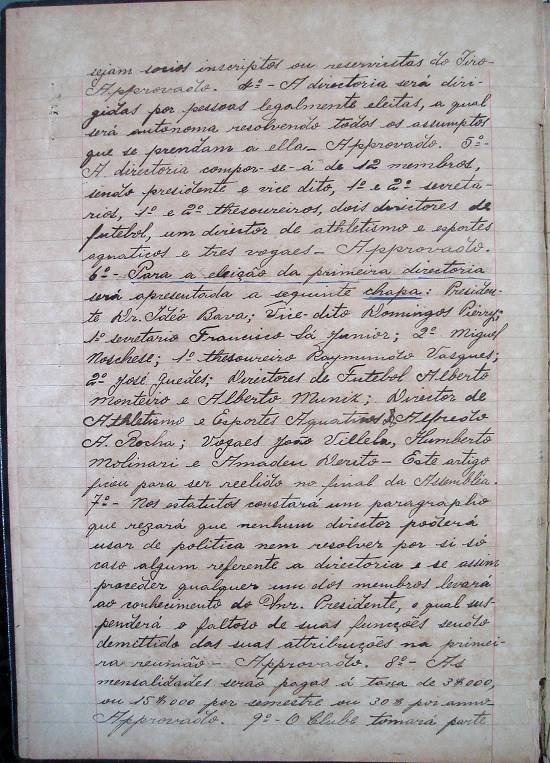 sejam socios inscriptos ou reservistas do Tiro-
Approvado. 4º - A directoria será diri-
gidas por pessoas legalmente eleitas, a qual
será autonoma resolvendo todos os assumptos
que se prendam a ella - Approvado. 5º -
A directoria compor-se-á de 12 membros,
sendo presidente e vice dito, 1º e 2º secreta-
rios, 1º e 2º thesoureiros, dois directores de
futebol, um director de athletismo e esportes
aquaticos e tres vogaes - Approvado.
6º - Para a eleição da primeira directoria
será apresentada a seguinte chapa: Presiden-
te Dr. Idéo Bava; Vice-dito Domingos Pierry;
1º secretario Francisco Sá Junior; 2º Miguel
Noschese; 1º thesoureiro Raymundo Vasques;
2º José Guedes; Directores de Futebol Alberto
Monteiro e Alberto Muniz; Director de
Athletismo e Esportes Aquaticos Alfredo
A. Rocha; Vogaes João Villela, Humberto
Molinari e Amadeu Derito - Este artigo
ficou para ser reelido no final da Assemblia.
7º - Nos estatutos constará um paragrapho
que rezará que nenhum director poderá
usar de politica nem resolver por si só
caso algum referente a directoria e se assim
proceder qualquer um dos membros levará
ao conhecimento do Snr. Presidente, o qual sus-
penderá o faltoso de suas funcções sendo
demittido das suas attribuições na primei-
ra reunião - Approvado. 8º - As
mensalidades serão pagas á taxa de 3$000,
ou 15$000 por semestre ou 30$ por anno
Approvado. 9º - O Clube tomará parte